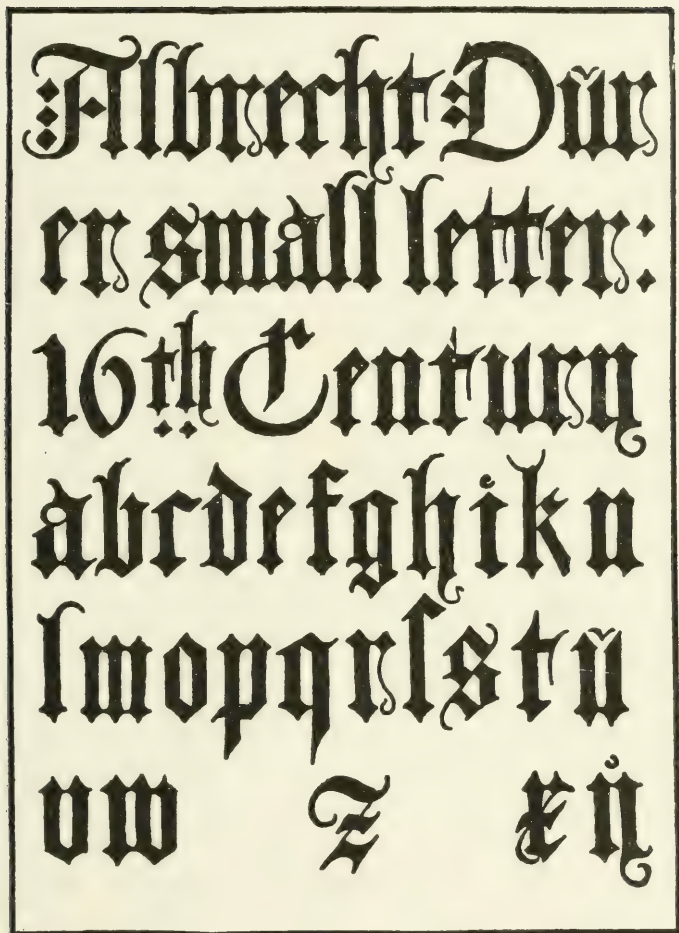 :Albrecht:Dŭr
er small letter:
16th Century
abcdefghikn
lmopqrſstŭ
vw z xẙ